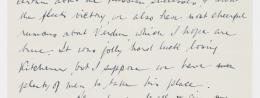 the fleet's victory, we also hear most cheerful
rumours about Verdun which I hope are
true. It was jolly hard luck losing
Kitchener but I suppose we have
plenty of men to take his place.